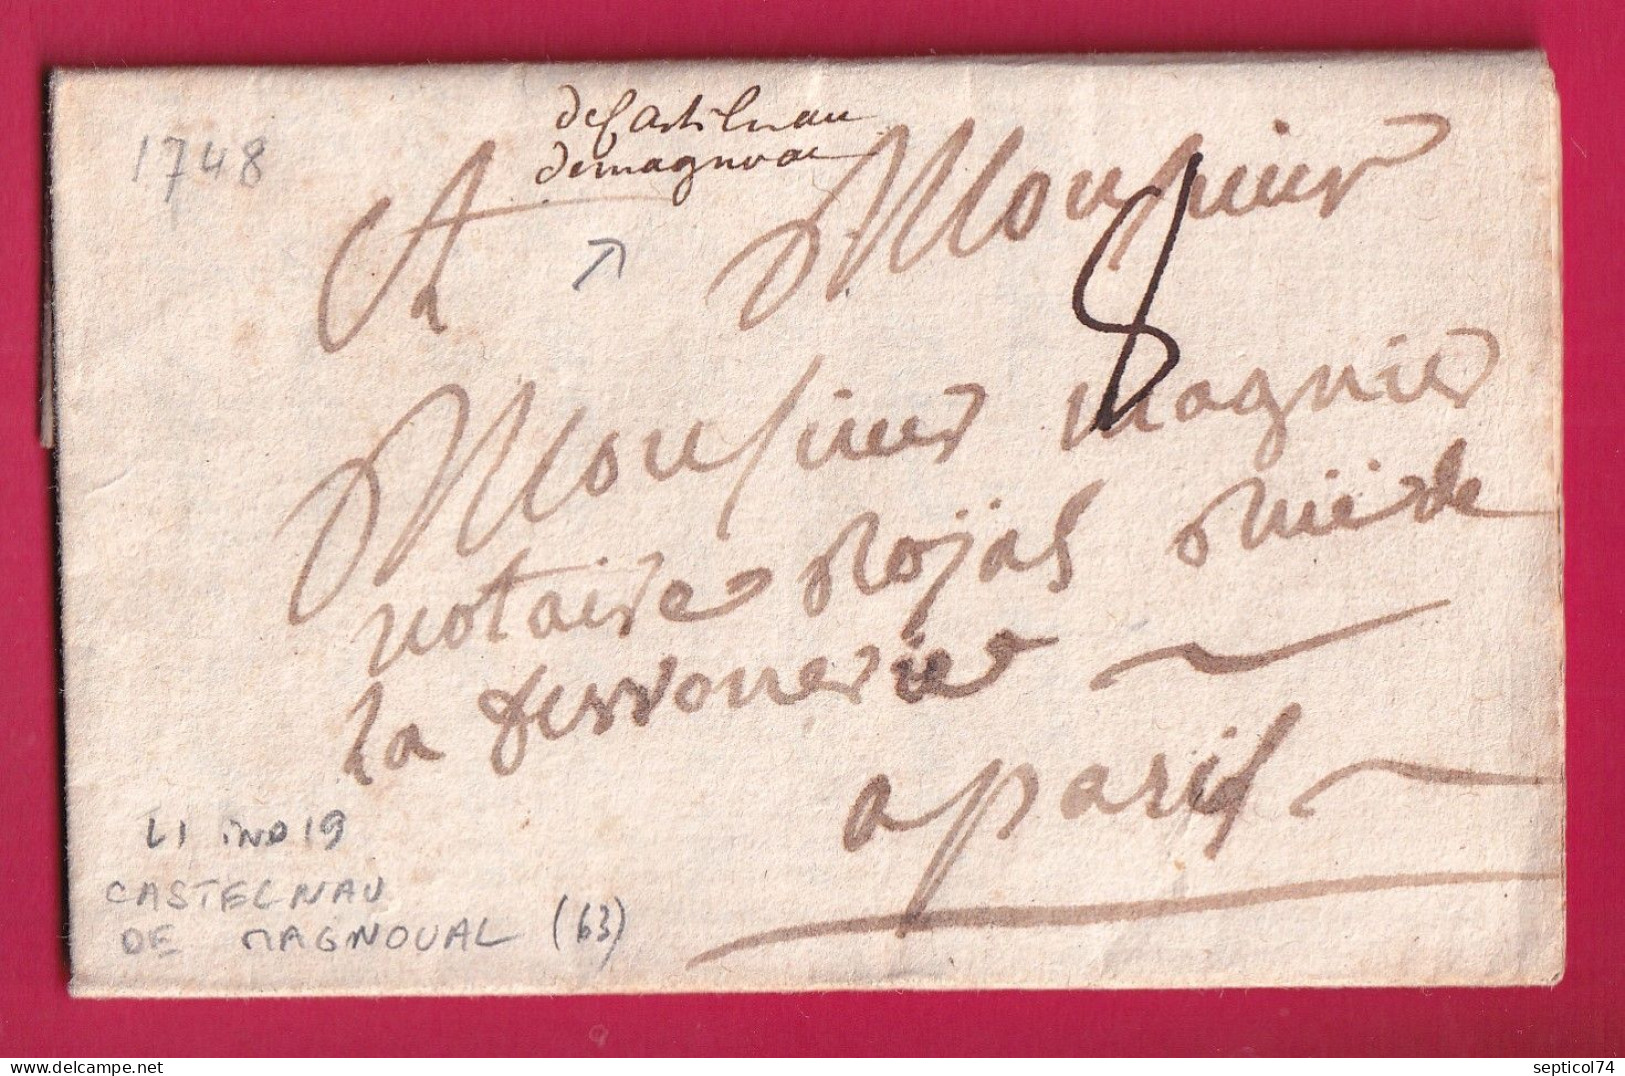 1748
de Castelnau
de magnoac
A Monsieur
a
8
Monsieur magnier
notaire Rojal Ruë de
la ferronerie
a paris
L1 IND 19
CASTELNAU
DE MAGNOUAL (63)
septicol74